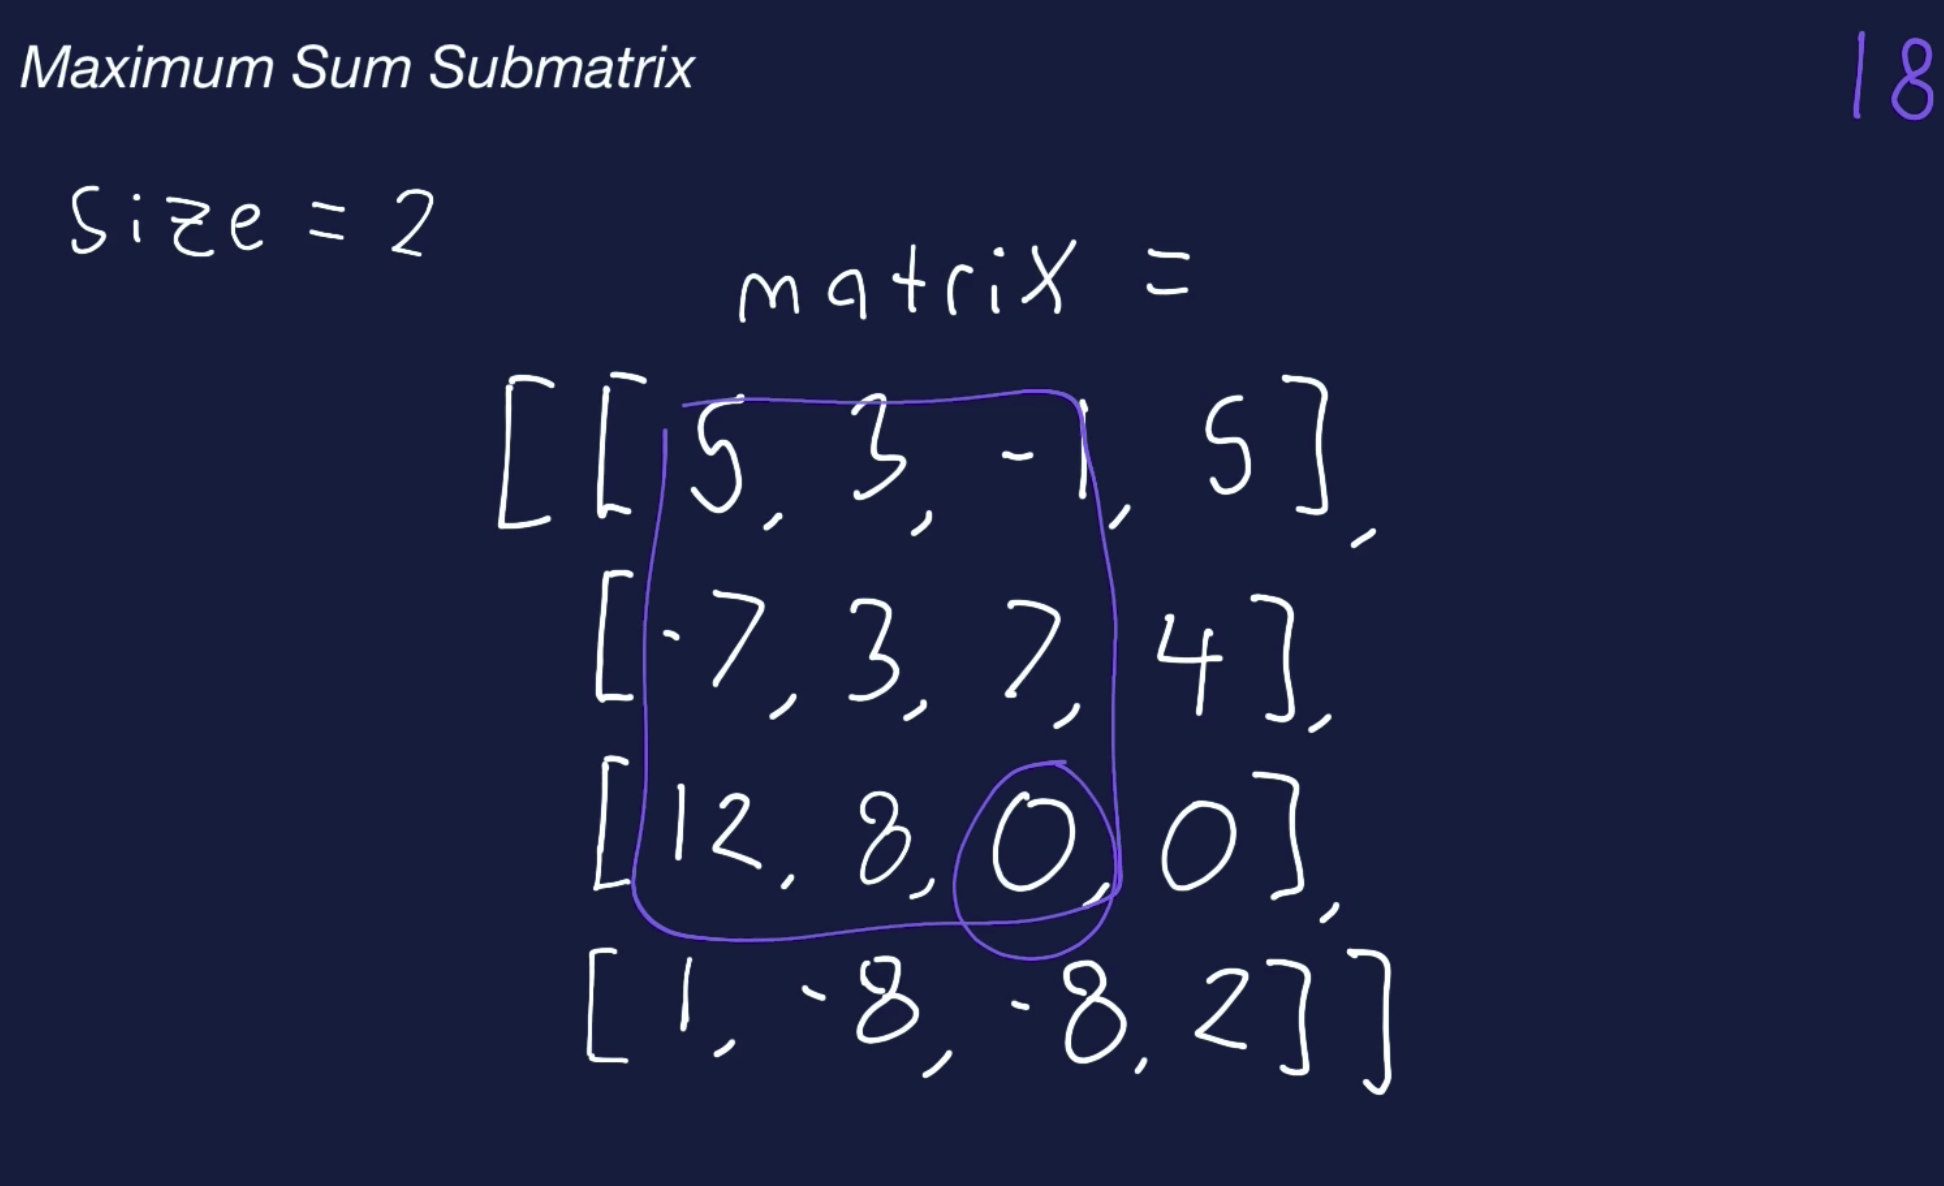 Maximum Sum Submatrix
18
size = 2
matrix =
[[5, 3, -1, 5],
[-7, 3, 7, 4],
[12, 8, 0, 0],
[1, -8, -8, 2]]